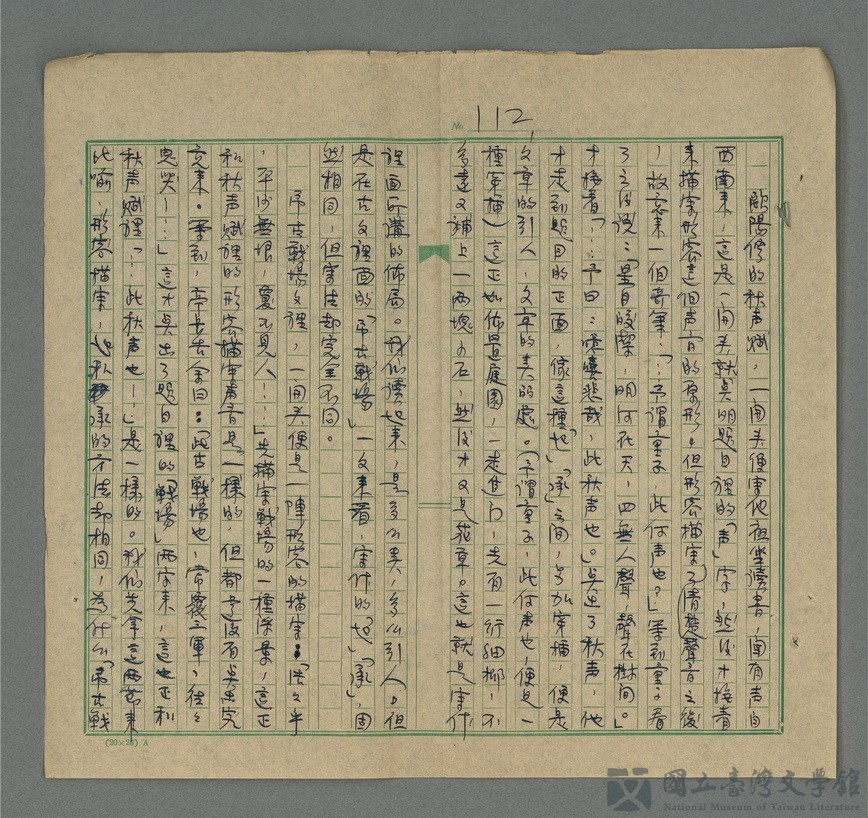 No. 112
歐陽修的秋声赋，一開头便寫他夜坐讀書，聞有声自
西南來，這是一開头就点明題目裡的「声」字，然後才接着
來描寫形容這個声音的原形。但形容描寫了清楚聲音之後
，故意來一個奇筆，「…予謂童子，此何声也？」等到童子看
了之後說：「星月皎潔，明河在天，四無人聲，聲在樹間。」
才接着「…予曰：噫嘻悲哉，此秋声也。」点出了秋声，他
才走到題目的正面，像這種「起」「承」之間，另加穿插，便是
文章的引人，文章的美的處。（予謂童子，此何声也，便是一
種穿插）這正如佈置庭園，一走進门，先有一行細柳，不
多遠又補上一兩塊小石，然後才又是花草。這也就是寫作
裡面所講的佈局。我们讀起來，是多么美，多么引人。但
是在古文裡面的「吊古戰場」一文來看，寫作的「起」「承」，固
然相同，但寫法却完全不同。
吊古戰場文裡，一開头便是一陣形容的描寫：「浩浩乎
，平沙無垠，夐不見人！…」先描寫戰場的一種情景，這正
和秋声赋裡的形容描寫声音是一樣的，但都還沒有点出究
竟來。等到，亭長告余曰：「此古戰場也，常覆三軍，往々
鬼哭！…」這才点出了題目裡的「戰場」两字來，這也正和
秋声赋裡「…此秋声也！…」是一樣的。我们先拿這两篇來
比喻，形容描寫，起和承的方法却相同，為什么「吊古戰
(20×25) A
國立臺灣文學館
National Museum of Taiwan Literature